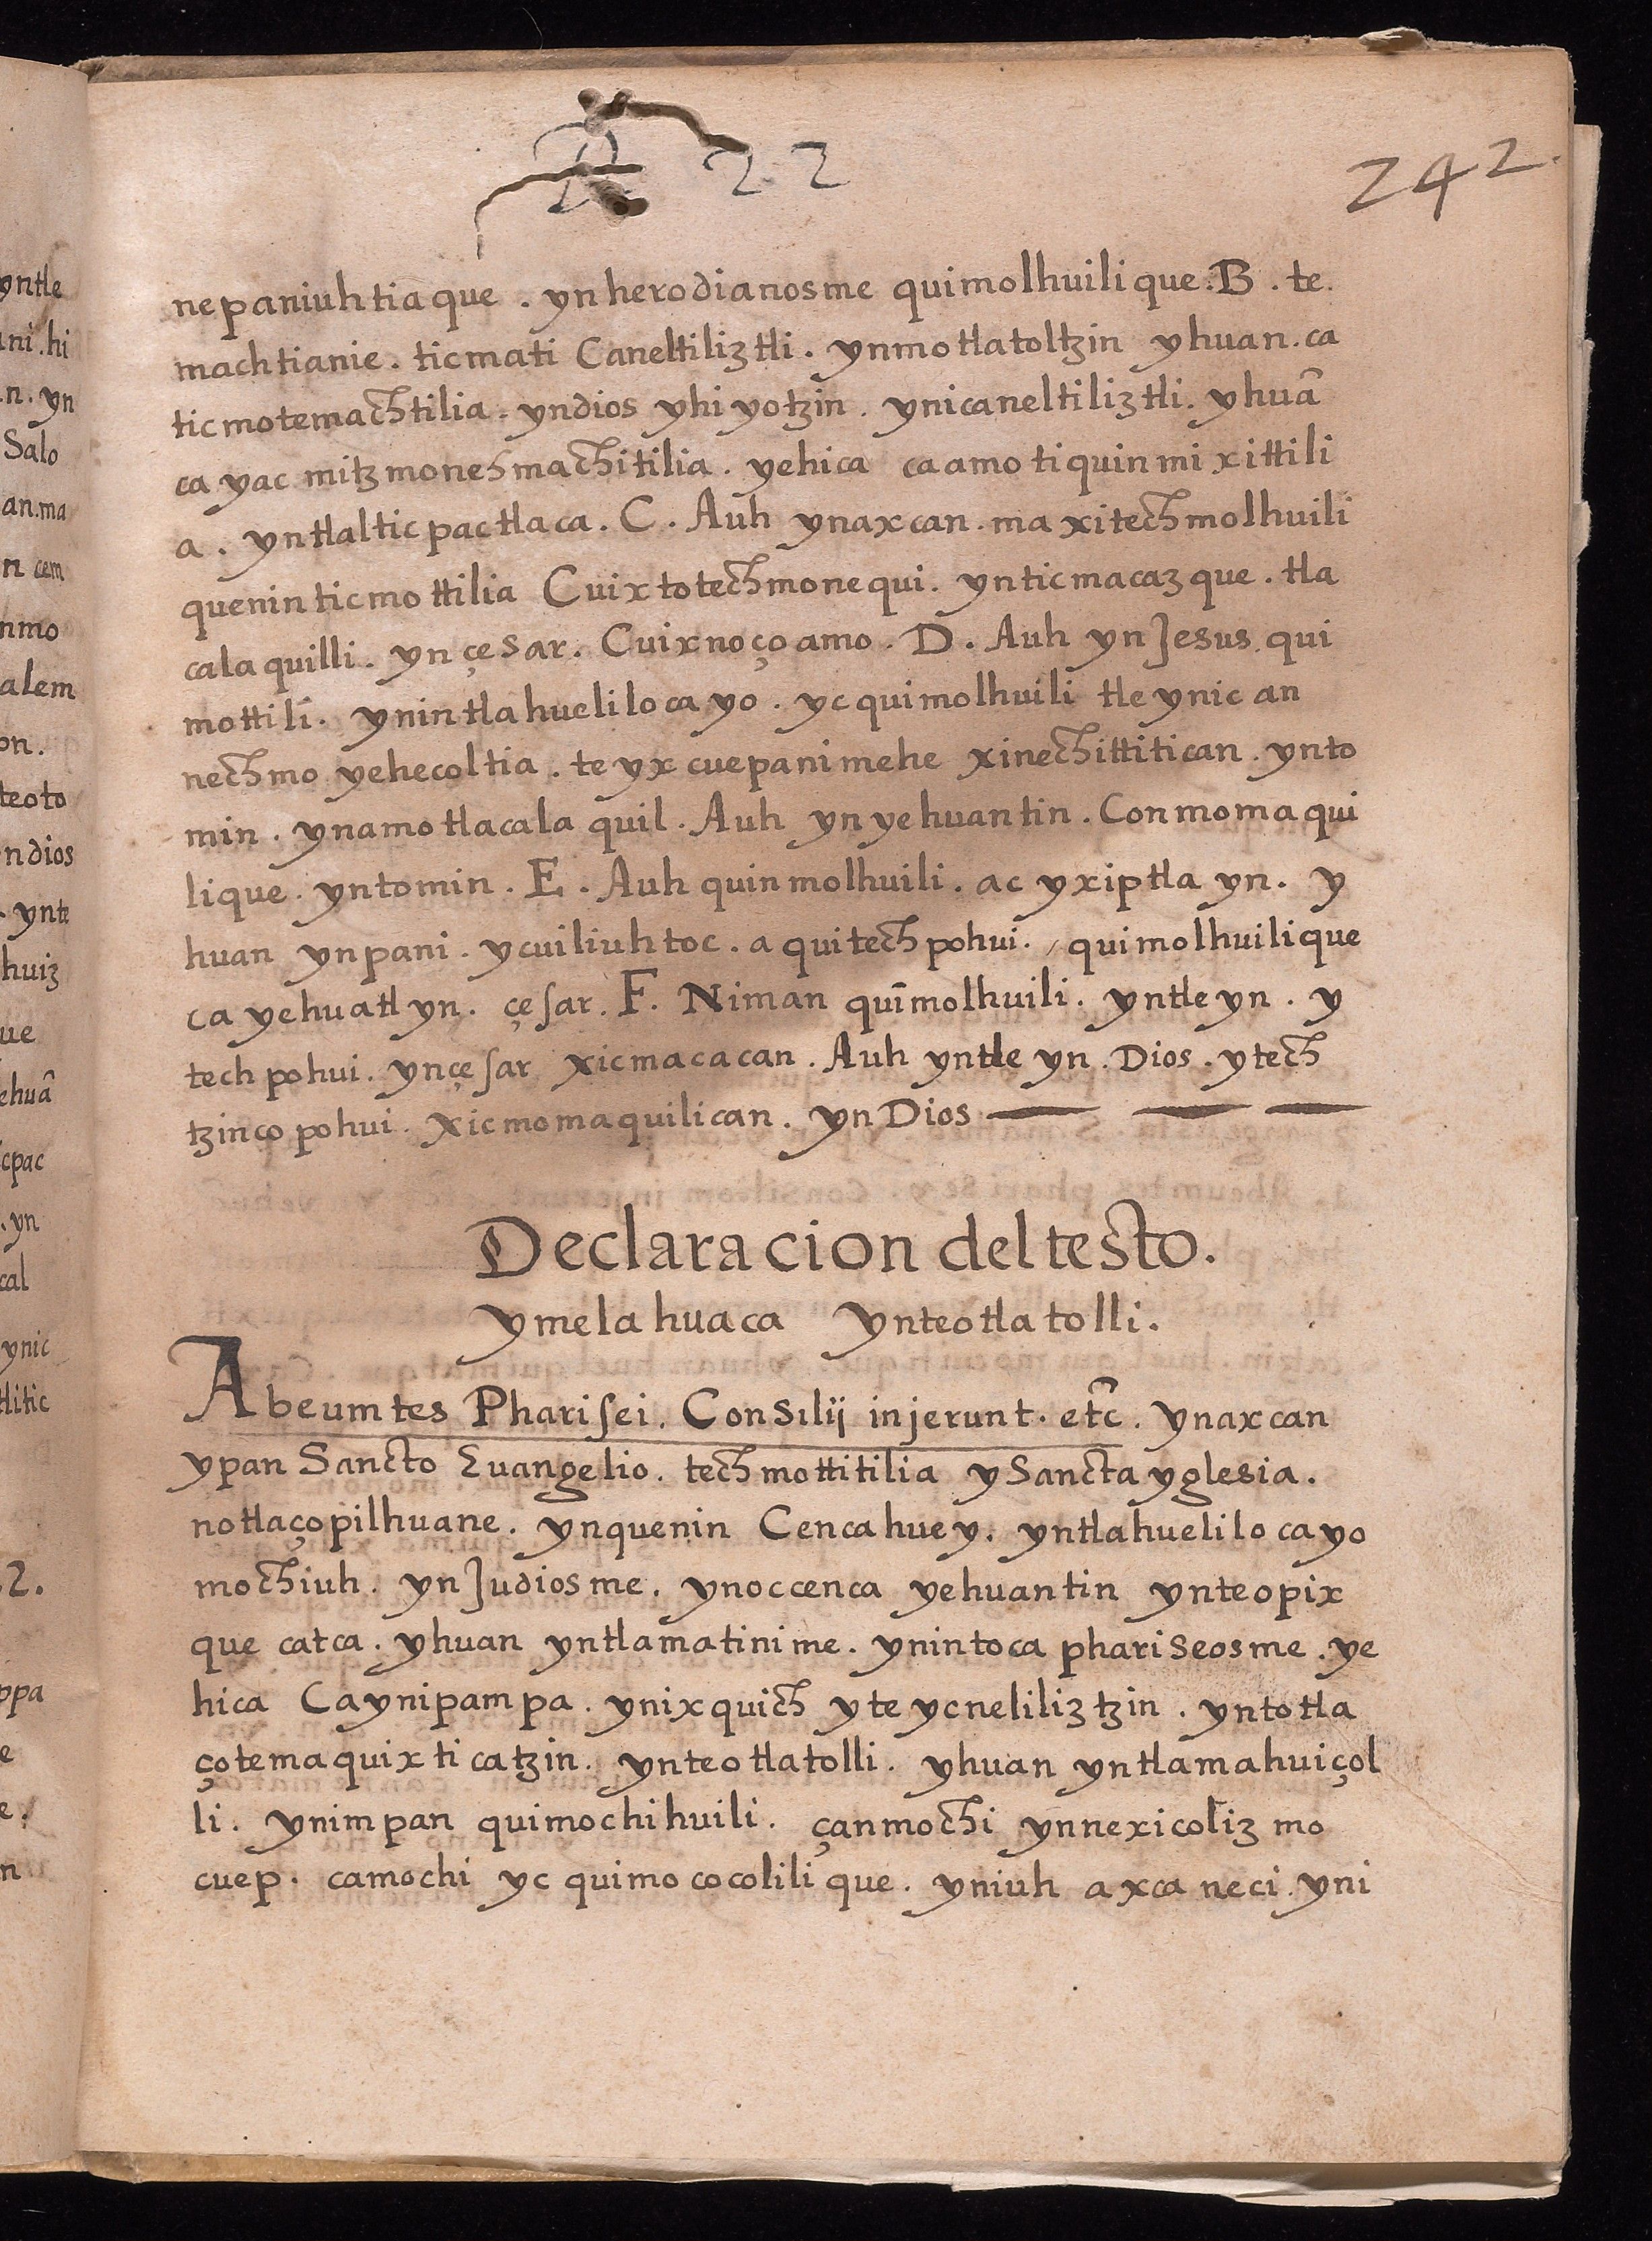 22
242.
nepaniuhtiaque. yn herodianosme quimolhuilique. B. te.
machtianie. ticmati Caneltiliztli. ynmotlatoltzin yhuan. ca
ticmotemachtilia. yndios yhiyotzin. ynicaneltiliztli. yhuā
ca yac mitzmonehmachitilia. yehica ca amo tiquinmixittili
a. yntlalticpactlaca. C. Auh ynaxcan. ma xitechmolhuili
quenin ticmottilia Cuix totechmonequi. ynticmacazque. tla
calaquilli. yn çesar. Cuixnoço amo. D. Auh yn Jesus. qui
mottili. ynintlahuelilocayo. yc quimolhuili tle ynic an
nechmoyehecoltia. teyxcuepanimehe xinechittitican. ynto
min. ynamotlacalaquil. Auh yn yehuantin. Conmomaqui
lique. yntomin. E. Auh quinmolhuili. ac yxiptla yn. y
huan ynpani. ycuiliuhtoc. aquitechpohui. quimolhuilique
ca yehuatl yn. çesar. F. Niman quīmolhuili. yntleyn. y
tech pohui. ynçesar xicmacacan. Auh yntle yn. Dios. ytech
tzinco pohui. xicmomaquilican. yn Dios
Declaracion del testo.
ymelahuaca ynteotlatolli.
Abeumtes Pharisei. Consilij injerunt. etc̄. ynaxcan
ypan Sancto Euangelio. techmottitilia y Sancta yglesia.
notlaçopilhuane. ynquenin Cencahuey. yntlahuelilocayo
mochiuh. yn Judiosme. ynoccenca yehuantin ynteopix
que catca. yhuan yntlamatinime. ynintoca phariseosme. ye
hica Caynipampa. ynixquich yteycneliliztzin. yntotla
çotemaquixticatzin. ynteotlatolli. yhuan yntlamahuiçol
li. ynimpan quimochihuili. çanmochi ynnexicoliz mo
cuep. camochi yc quimococolilique. yniuh axca neci. yni